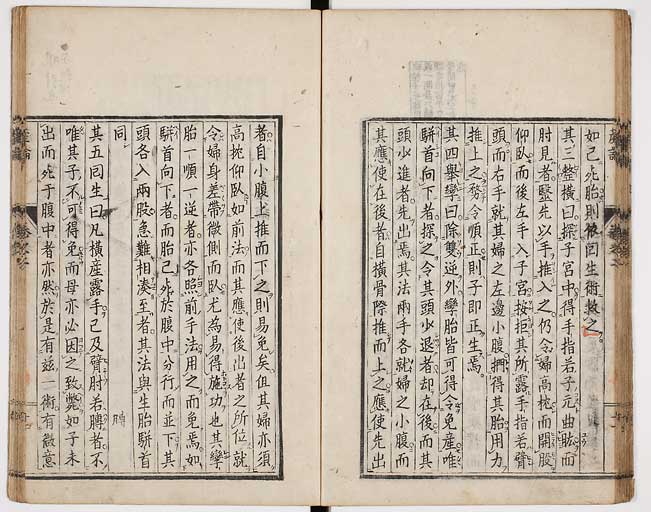 如已死胎則依回生術救之
其三整橫曰探子宮中得手指若子元曲肱而
肘見者毉先以手推入之仍令婦高枕而開股
仰臥而後左手入子宮按拒其所露手指若臂
頭而右手就其婦之左邊小腹搠得其胎用力
推上之務令順正則子即正生焉
其四舉攣曰除雙逆外攣胎皆可得令免產唯
駢首向下者探之令其頭少退者却在後而其
頭少進者先出焉其法兩手各就婦之小腹而
其應使在後者自橫骨際推而上之應使先出
者自小腹上推而下之則易免矣但其婦亦須
高枕仰臥如前法而其應使後出者之所位就
令婦身差帶微側而臥尤為易得施功也其攣
胎一順一逆者亦各照前手法用之而免焉如
駢首向下者而胎已死於腹中分行而並下其
頭各入兩股急難相湊至者其法與生胎駢首
同
其五回生曰凡橫産露手已及臂肘若膊者不
唯其子不可得免而母亦必因之致斃如子未
出而死于腹中者亦然於是有玆一術有微意